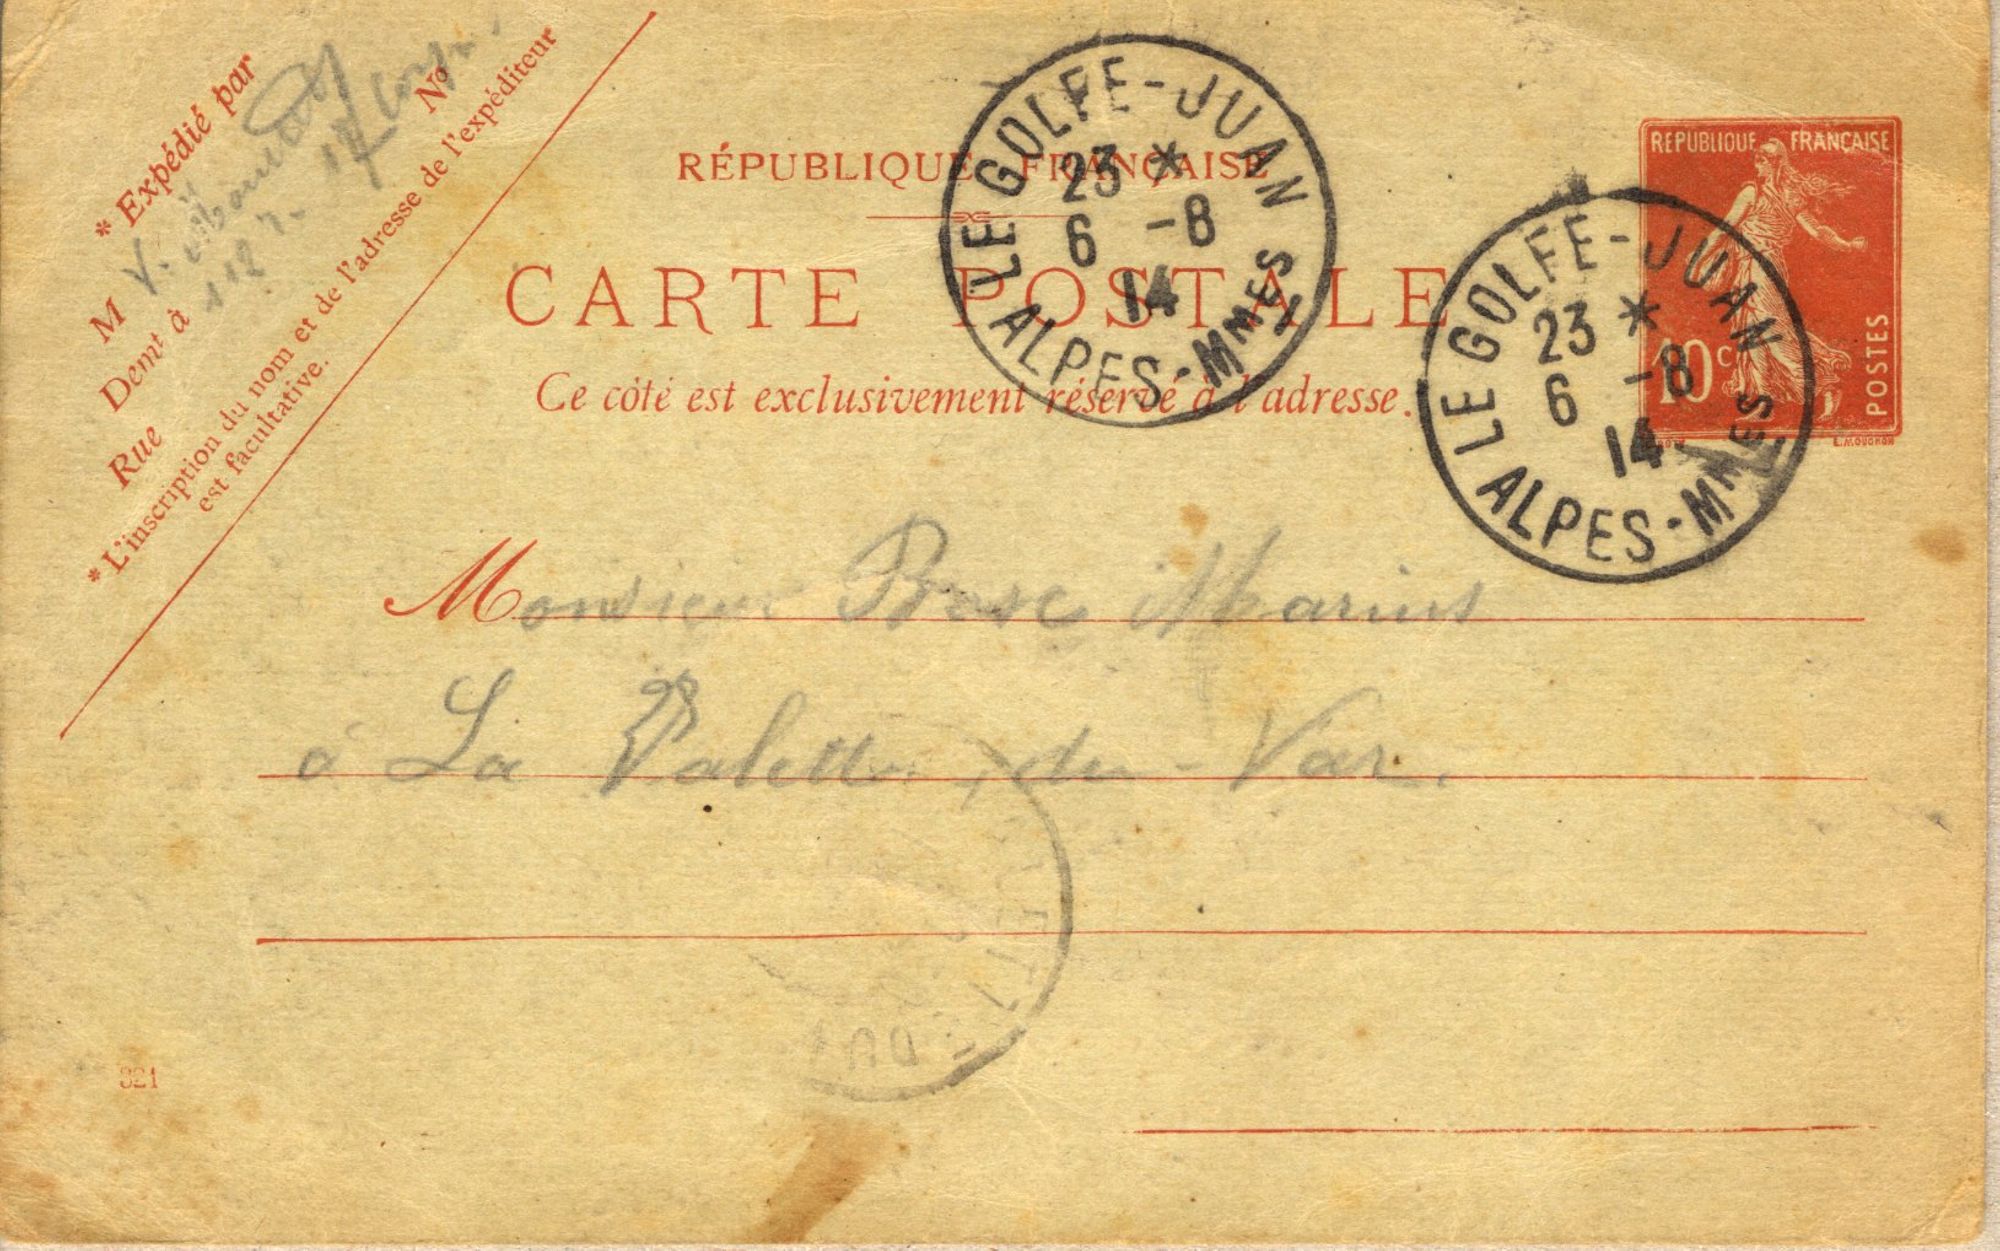 * Expédié par
M V.
Demt à 112
Rue Nº 17
* L'inscription du nom et de l'adresse de l'expéditeur
est facultative.
RÉPUBLIQUE FRANÇAISE
CARTE POSTALE
Ce côté est exclusivement réservé à l'adresse.
LE GOLFE-JUAN
23 *
6 -8
14
ALPES-MMES
REPUBLIQUE FRANÇAISE
10c
POSTES
E. MOUCHON
LE GOLFE-JUAN
23 *
6 -8
14
ALPES-MMES
Monsieur Bosc Marius
à La Valette, du-Var.
821